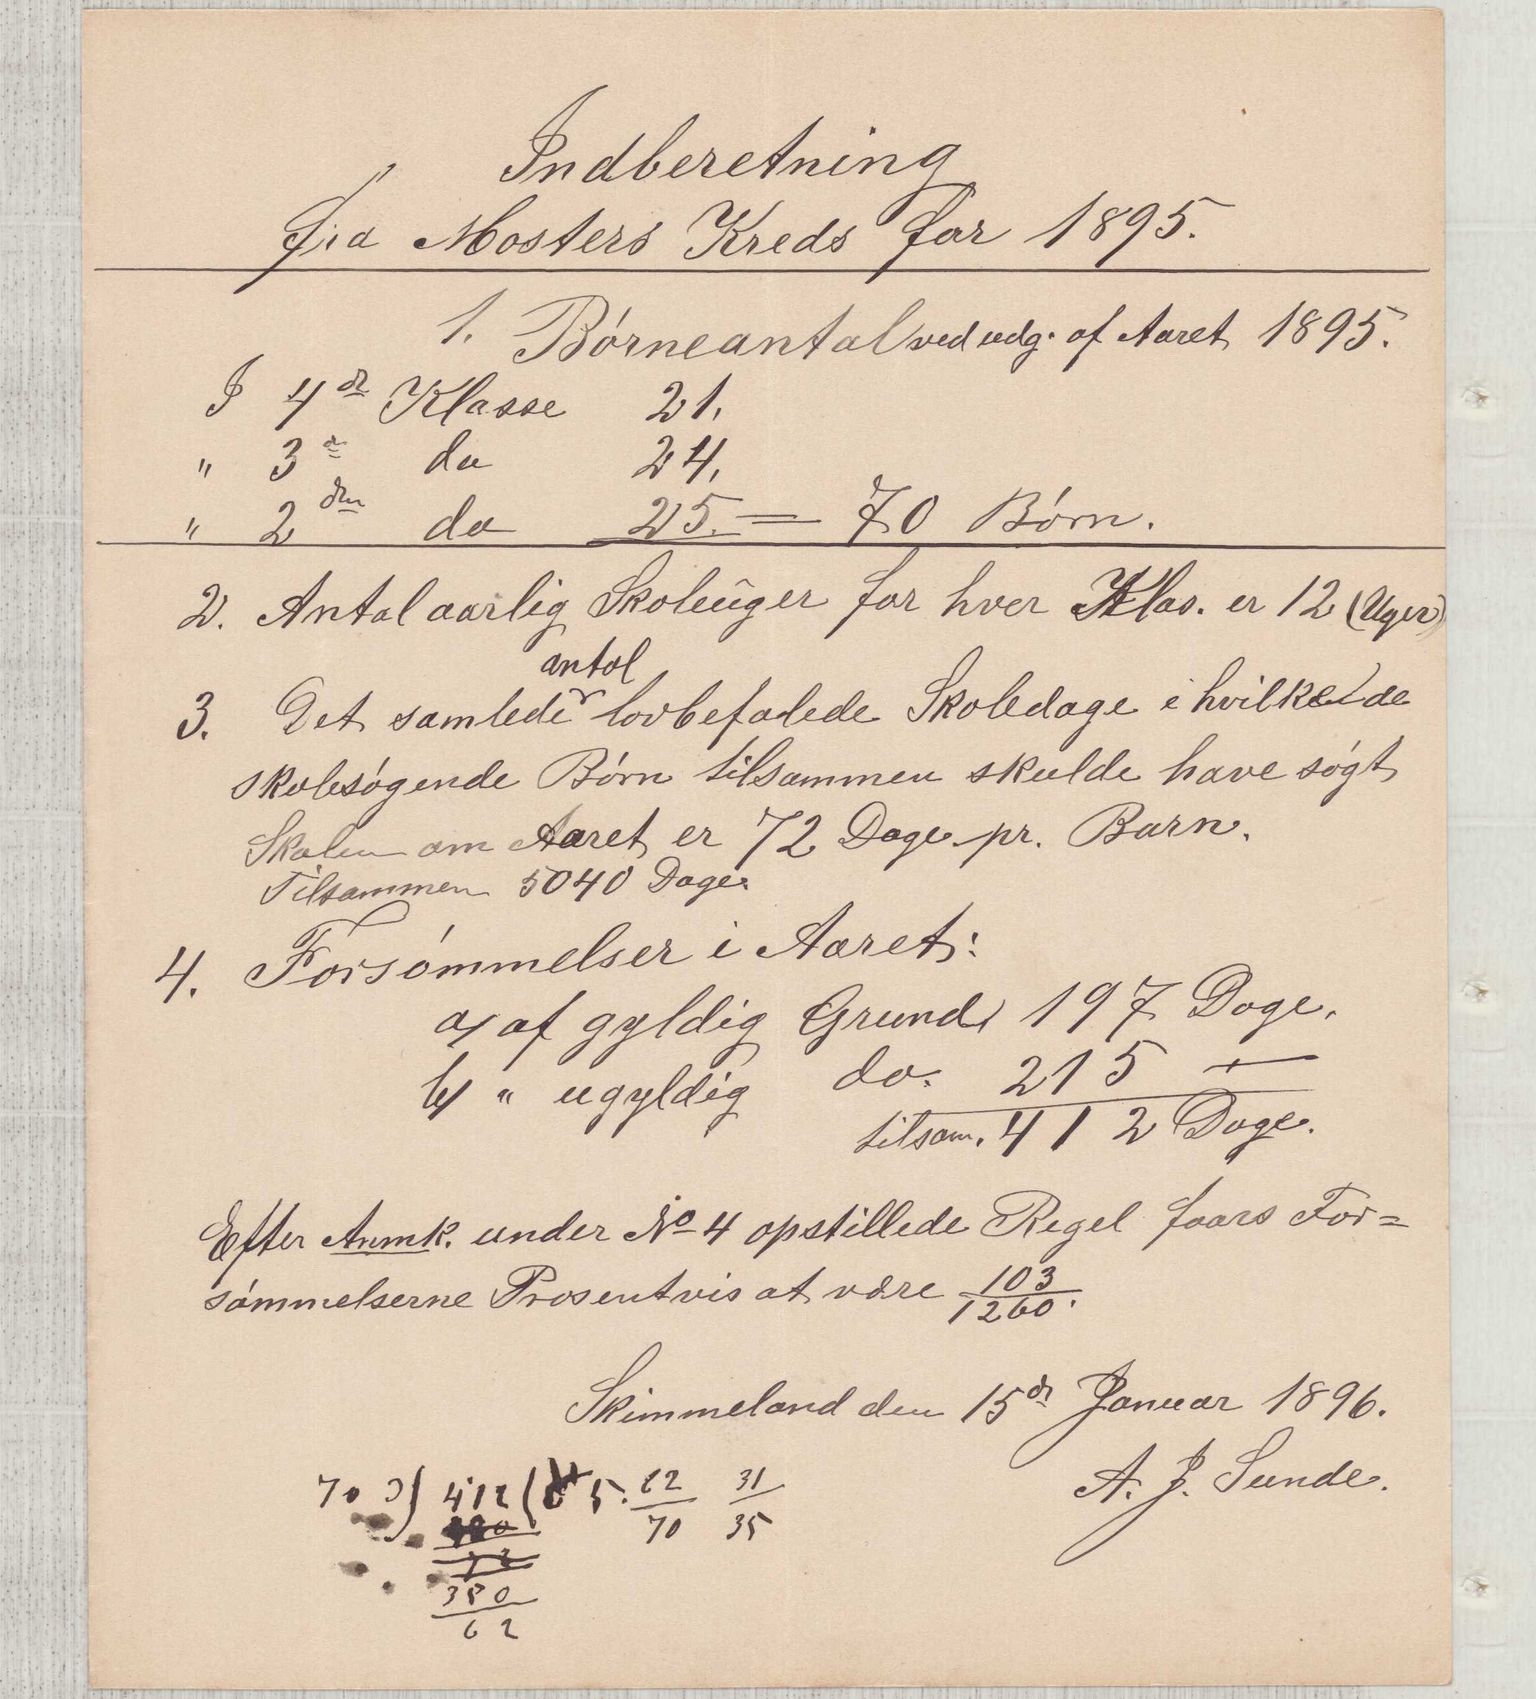 Indberetning
fra Mosters Kreds for 1895.
1. Børneantal ved udg. af Aaret 1895.
I 4de Klasse 21.
" 3de do 24.
" 2den do 25. = 70 Børn.
2. Antal aarlig Skoleuger for hver Klas. er 12 (Uger)
antal
3. Det samlede lovbefalede Skoledage i hvilke de
skolesøgende Børn tilsammen skulde have søgt
Skolen om Aaret er 72 Dage pr. Barn.
Tilsammen 5040 Dage.
4. Forsømmelser i Aaret:
a) af gyldig Grund 197 Dage.
b) " ugyldig do. 215 —
tilsam. 412 Dage.
Efter Anmk. under No 4 opstillede Regel faaes For=
sømmelserne Prosentvis at være 103/1260.
Skimmeland den 15de Januar 1896.
A. J. Sunde.
70 ) 412 ( 5. 62/70 31/35
72
350
62